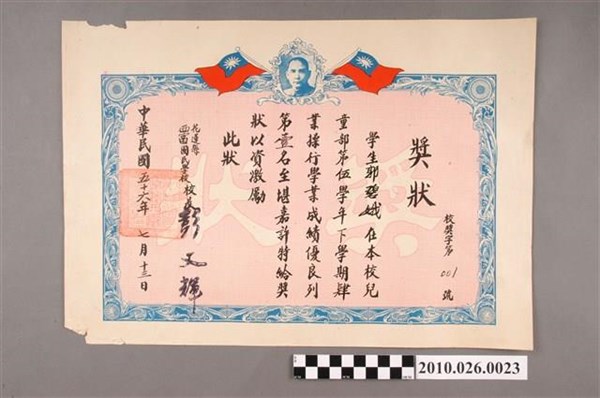 獎狀
校獎字第 001 號
學生郭碧娥在本校兒
童部第伍學年下學期肄
業操行學業成績優良列
第壹名至堪嘉許特給獎
狀以資激勵
此狀
花蓮縣
國民學校 校長 彭文輝
中華民國五十六年 七月 十三日
獎狀
2010.026.0023